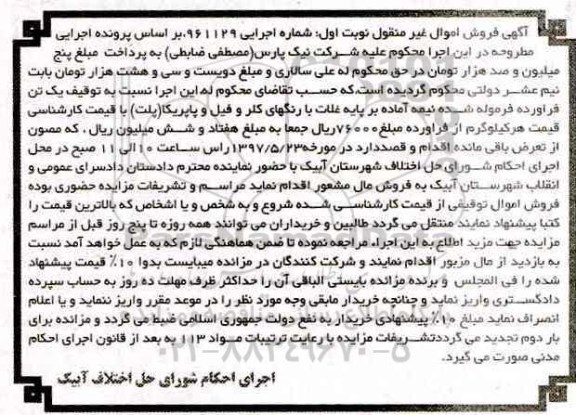 آگهی فروش اموال غیر منقول نوبت اول؛ شماره اجرایی ۹۶۱۱۲۹،بر اساس پرونده اجرایی
مطروحه در این اجرا محکوم علیه شرکت نیک پارس(مصطفی ضابطی) به پرداخت مبلغ پنج
میلیون و صد هزار تومان در حق محکوم له علی سالاری و مبلغ دویست و سی و هشت هزار تومان بابت
نیم عشر دولتی محکوم گردیده است،که حسب تقاضای محکوم له این اجرا نسبت به توقیف یک تن
فراورده فرموله شده نیمه آماده بر پایه غلات با رنگهای کلر و فیل و پاپریکا(پلت) با قیمت کارشناسی
قیمت هرکیلوگرم از فراورده مبلغ۷۶۰۰۰ریال جمعا به مبلغ هفتاد و شش میلیون ریال ، که مصون
از تعرض باقی مانده اقدام و قصددارد در مورخه۱۳۹۷/۵/۲۳راس ساعت ۱۰الی ۱۱ صبح در محل
اجرای احکام شورای حل اختلاف شهرستان آبیک با حضور نماینده محترم دادستان دادسرای عمومی و
انقلاب شهرستان آبیک به فروش مال مشعور اقدام نماید مراسم و تشریفات مزایده حضوری بوده
فروش اموال توقیفی از قیمت کارشناسی شده شروع و به شخص و یا اشخاص که بالاترین قیمت را
کتبا پیشنهاد نمایند منتقل می گردد طالبین و خریداران می توانند همه روزه تا پنج روز قبل از مراسم
مزایده جهت مزید اطلاع به این اجراء مراجعه نموده تا ضمن هماهنگی لازم که به عمل خواهد آمد نسبت
به بازدید از مال مزبور اقدام نمایند و شرکت کنندگان در مزانده میبایست بدوا ۱۰٪ قیمت پیشنهاد
شده را فی المجلس و برنده مزانده بایستی الباقی آن را حداکثر ظرف مهلت ده روز به حساب سپرده
دادگستری واریز نماید و چنانچه خریدار مابقی وجه مورد نظر را در موعد مقرر واریز ننماید و یا اعلام
انصراف نماید مبلغ ۱۰٪ پیشنهادی خریدار به نفع دولت جمهوری اسلامی ضبط می گردد و مزانده برای
بار دوم تجدید می گرددتشریفات مزایده با رعایت ترتیبات مواد ۱۱۳ به بعد از قانون اجرای احکام
مدنی صورت می گیرد.
۰۲۱-۸۸۳۴۹۶۷۰-۵
اجرای احکام شورای حل اختلاف آبیک